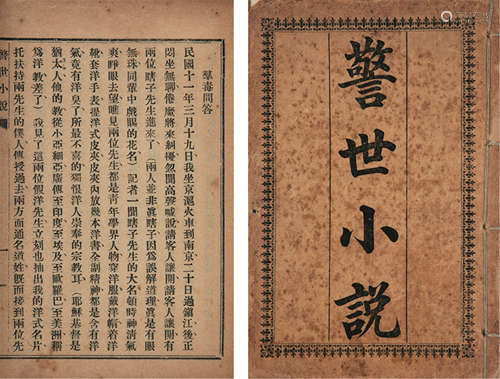 警世小說
問答
民國十一年三十九日我坐京滬火車到南京二十日過鎮江後正
悶坐無聊倦魔將來糾擾忽聞高聲喊說請客人讓開請客人讓開有
兩位瞎子先生進來了（兩人並非眞瞎子因爲誤解道理眞是有眼
無珠同輩中戲賜的花名）記者一聞瞎子先生的大名頓時神清氣
爽睜眼去望瞧見兩位先生都是靑年學界人物穿洋服戴洋帽着洋
靴套洋手表提洋式皮夾皮夾內放幾本洋書全副精神都是含有洋
氣竟有洋臭了所最不喜的獨恨洋人崇奉的宗敎耳（耶穌基督是
猶太人他的敎從小亞細亞廣傳至印度至埃及至歐羅巴至美洲稱
爲洋敎差了）我見了這兩位假洋先生立刻也抽出我的洋式名片
托扶持兩先生的僕人傳授過去兩方面通名道姓旣而接到兩位先
警世小說